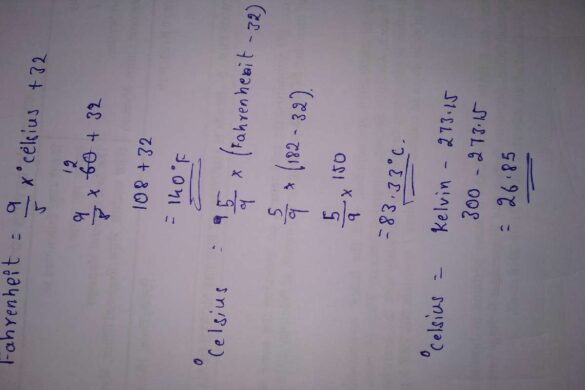 Fahrenheit = 9/5 x °celsius + 32
9/5 x 60 12 + 32
108 + 32
= 140°F
°Celsius = 5/9 x (Fahrenheit - 32)
5/9 x (182 - 32)
5/9 x 150
= 83.33°C.
°Celsius = Kelvin - 273.15
300 - 273.15
= 26.85